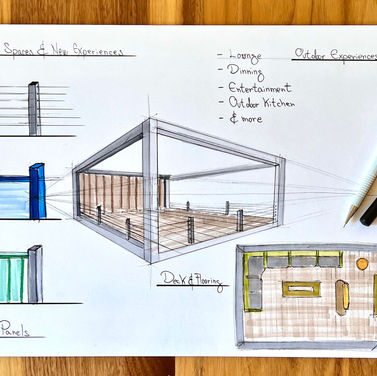 Spaces & New Experiences
Outdoor Experiences
- Lounge
- Dinning
- Entertainment
- Outdoor Kitchen
- & more
Deck & Flooring
Panels